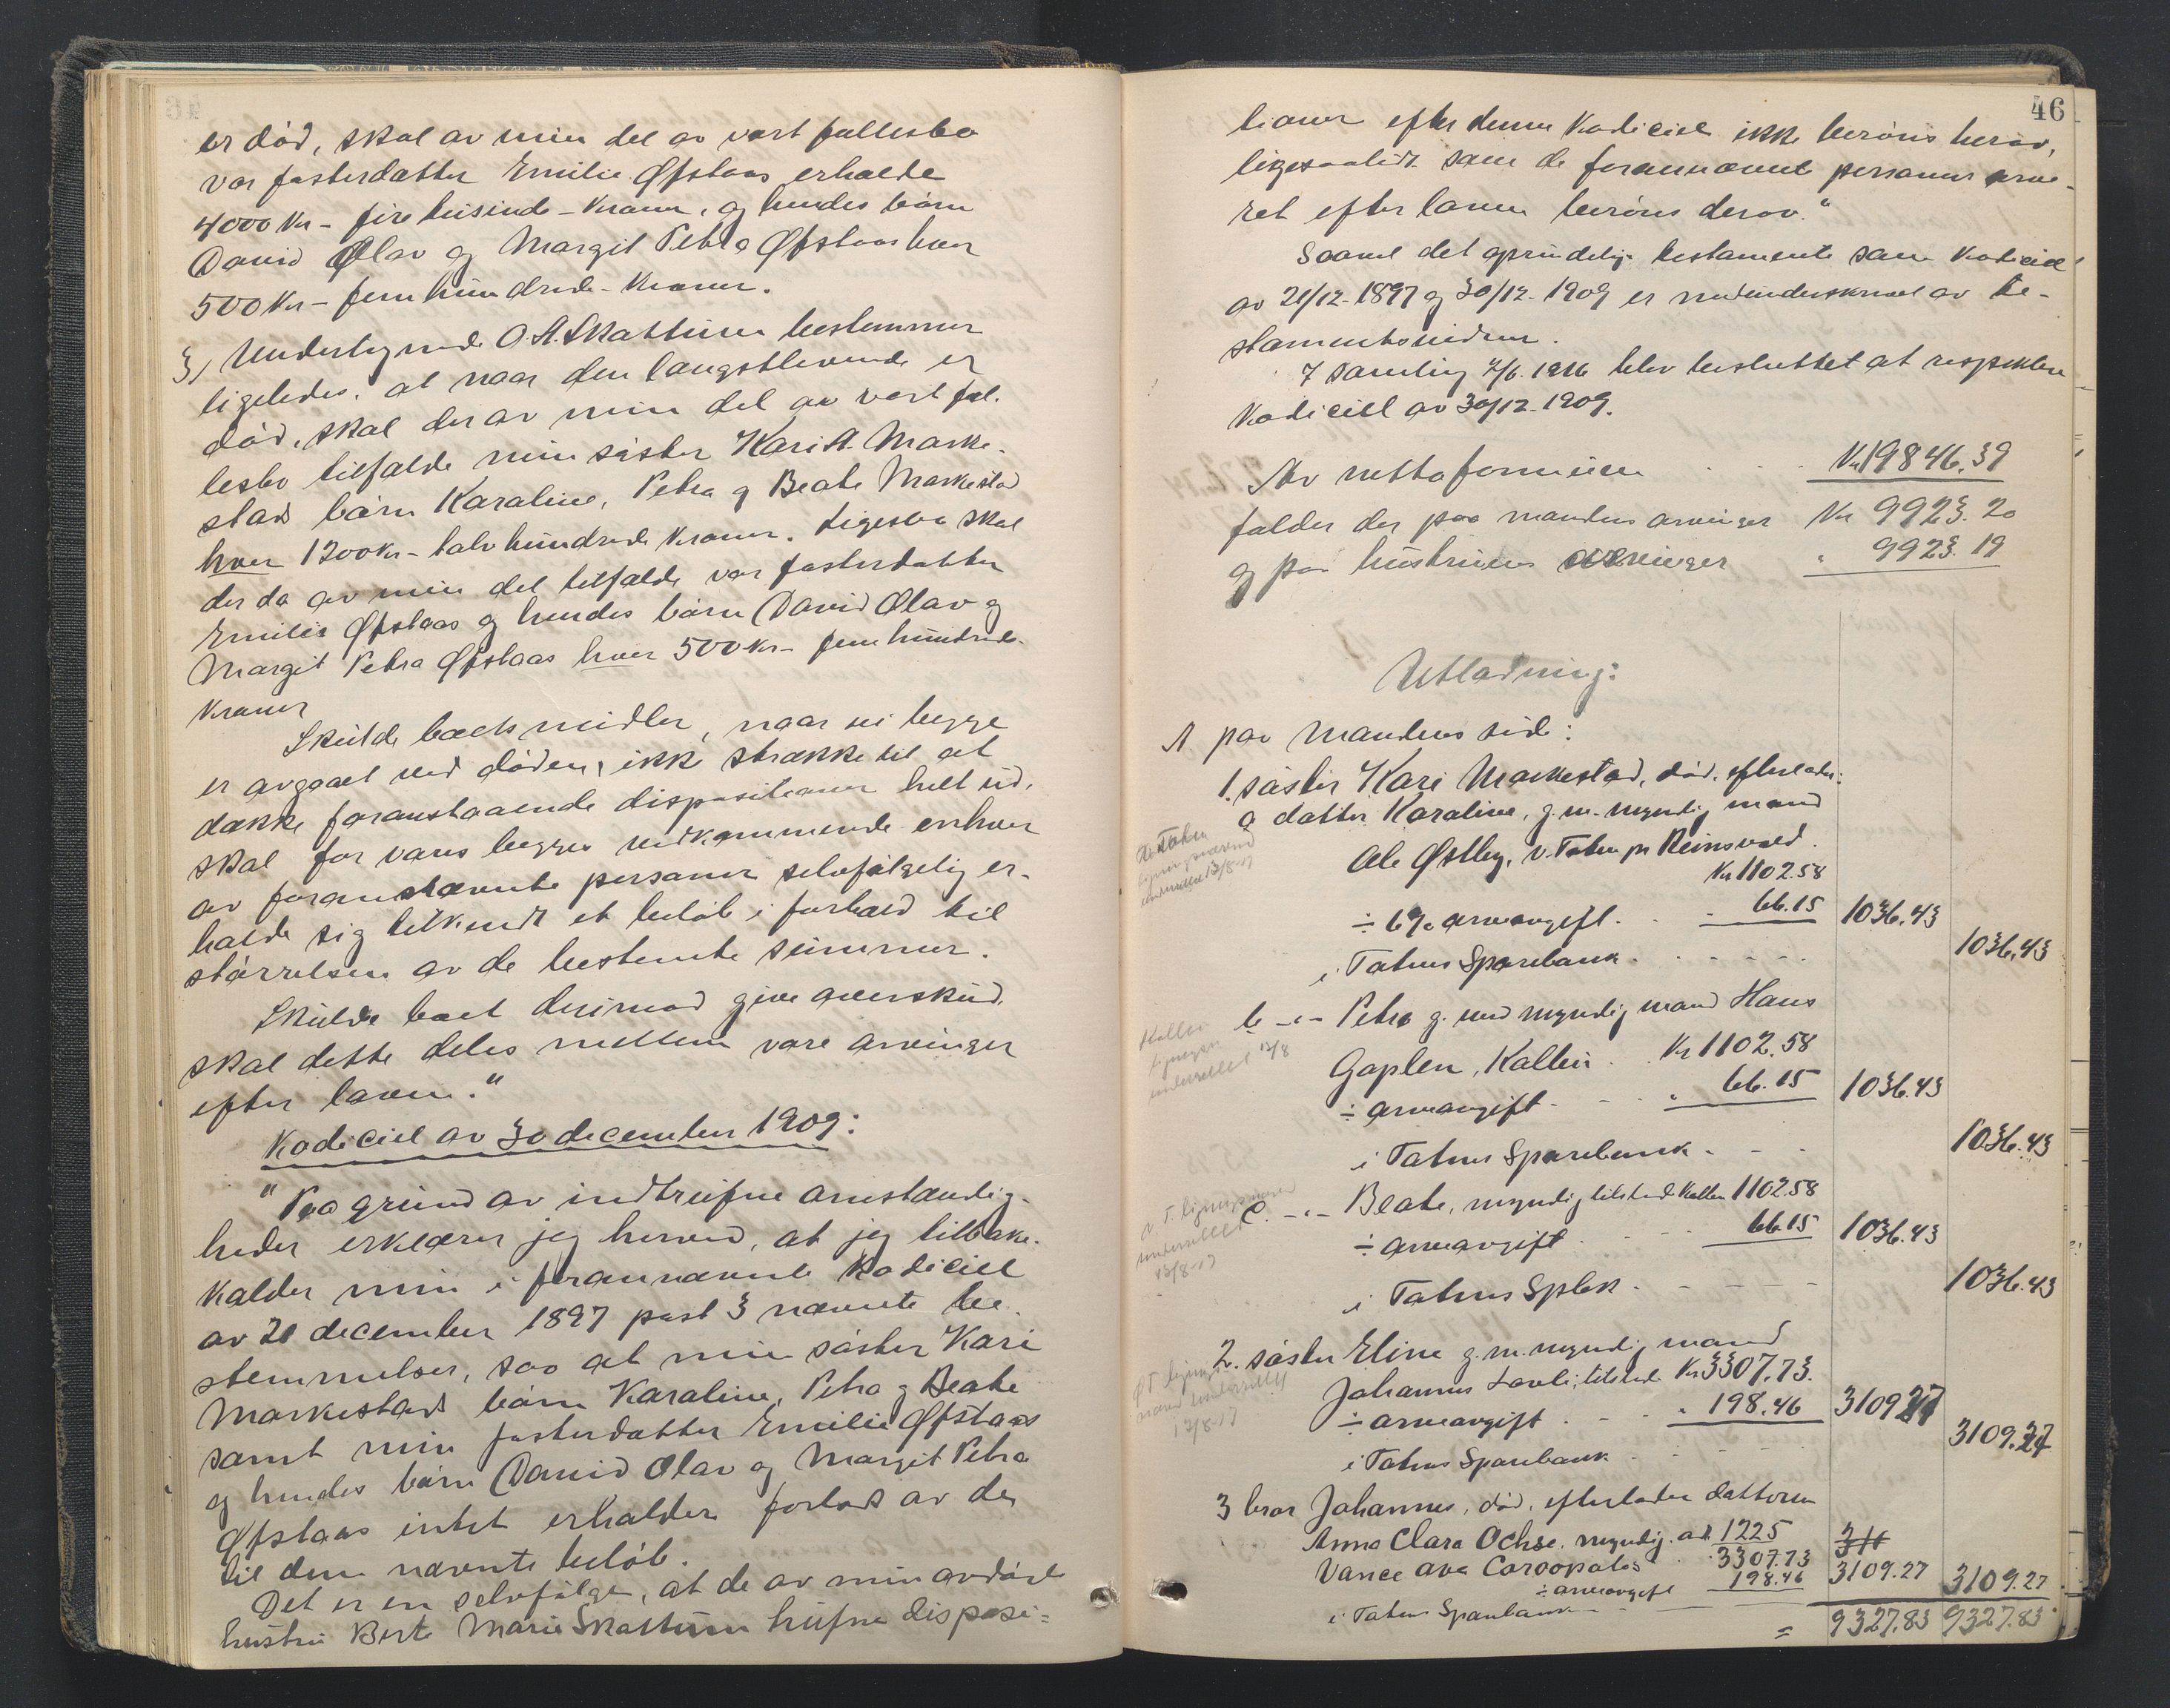 er död, skal av min del av vort fællesbo
vor fosterdatter Emilie Øfstaas erholde
4000 Kr – fire tusinde – Kroner, og hendes börn
David Olav og Margit Petra Øfstaas hver
500 Kr – fem hundrede – Kroner.
3, Undertegnede O. A. Skattum bestemmer
ligeledes, at naar den længstlevende er
död, skal der av min del av vort fæl-
lesbo tilfalde min söster Kari A. Marke-
stads börn Karoline, Petra og Beate Markestad
hver 1200 Kr – tolv hundrede Kroner. Ligesaa skal
der da av min del tilfalde vor fosterdatter
Emilie Øfstaas og hendes börn David Olav og
Margit Petra Øfstaas hver 500 Kr – fem hundrede
Kroner
Skulde boets midler, naar vi begge
er avgaaet ved döden, ikke strække til at
dække foranstaaende dispositioner helt ud,
skal for vores begges vedkommende enhver
av forannævnte personer selvfölgelig er-
holde sig tilkendt et belöb i forhold til
störrelsen av de bestemte summer.
Skulde boet derimod give överskud,
skal dette deles mellem vore arvinger
efter loven."
Kodicil av 30 december 1909:
"Paa grund av indtrufne omstændig-
heder erklærer jeg herved, at jeg tilbake-
kalder min i forannævnte Kodicil
av 21 december 1897 post 3 nævnte be-
stemmelser, saa at min söster Kari
Markestads börn Karoline, Petra og Beate
samt min fosterdatter Emilie Øfstaas
og hendes börn David Olav og Margit Petra
Øfstaas intet erholder forlods av de
til dem nævnte belöb.
Det er en selvfölge, at de av min avdöde
hustru Berte Marie Skattum trufne disposi=
46
tioner efter denne Kodicil ikke beröres herav,
ligesaalidt som de forannævnte personers arve-
ret efter loven beröres derav."
Saavel det oprindelige testamente som Kodicil
av 21/12-1897 og 30/12-1909 er medunderskrevet av te-
stamentsvidner.
I samling 7/6 1916 blev besluttet at respektere
Kodicill av 30/12-1909.
Av nettoformuen Kr 19846.39
falder der paa mandens arvinger Kr 9923.20
og paa hustruens arvinger " 9923.19
Utlodning:
A paa Mandens side:
1. söster Kari Markestad, död, efterlader:
a datter Karoline, g.m. myndig mand
Ole Østby, V. Toten pr Reinsvold.
Kr 1102.58
÷ 6% arveavgift . . 66.15 1036.43
i Totens Sparebank . . . . . 1036.43
b –"– Petra g. med myndig mand Hans
Gaplen, Kolbu . Kr 1102.58
÷ arveavgift - - " 66.15 1036.43
i Totens Sparebank - - 1036.43
c. –"– Beate, myndig, tilsted Kolbu 1102.58
÷ arveavgift - - 66.15 1036.43
i Totens Spbk - - - - 1036.43
2. söster Eline g.m. myndig mand
Johannes , tilsted Kr 3307.73.
÷ arveavgift . - - " 198.46 3109.27
i Totens Sparebank - - 3109.27
3 bror Johannes, död, efterlader datteren
Anna Clara Ochse, myndig, ad. 1225
Vance ave Coroopolis 3307.73
÷ arveavgift 198.46 3109.27 3109.27
i Totens Sparebank
= 9327.83 9327.83